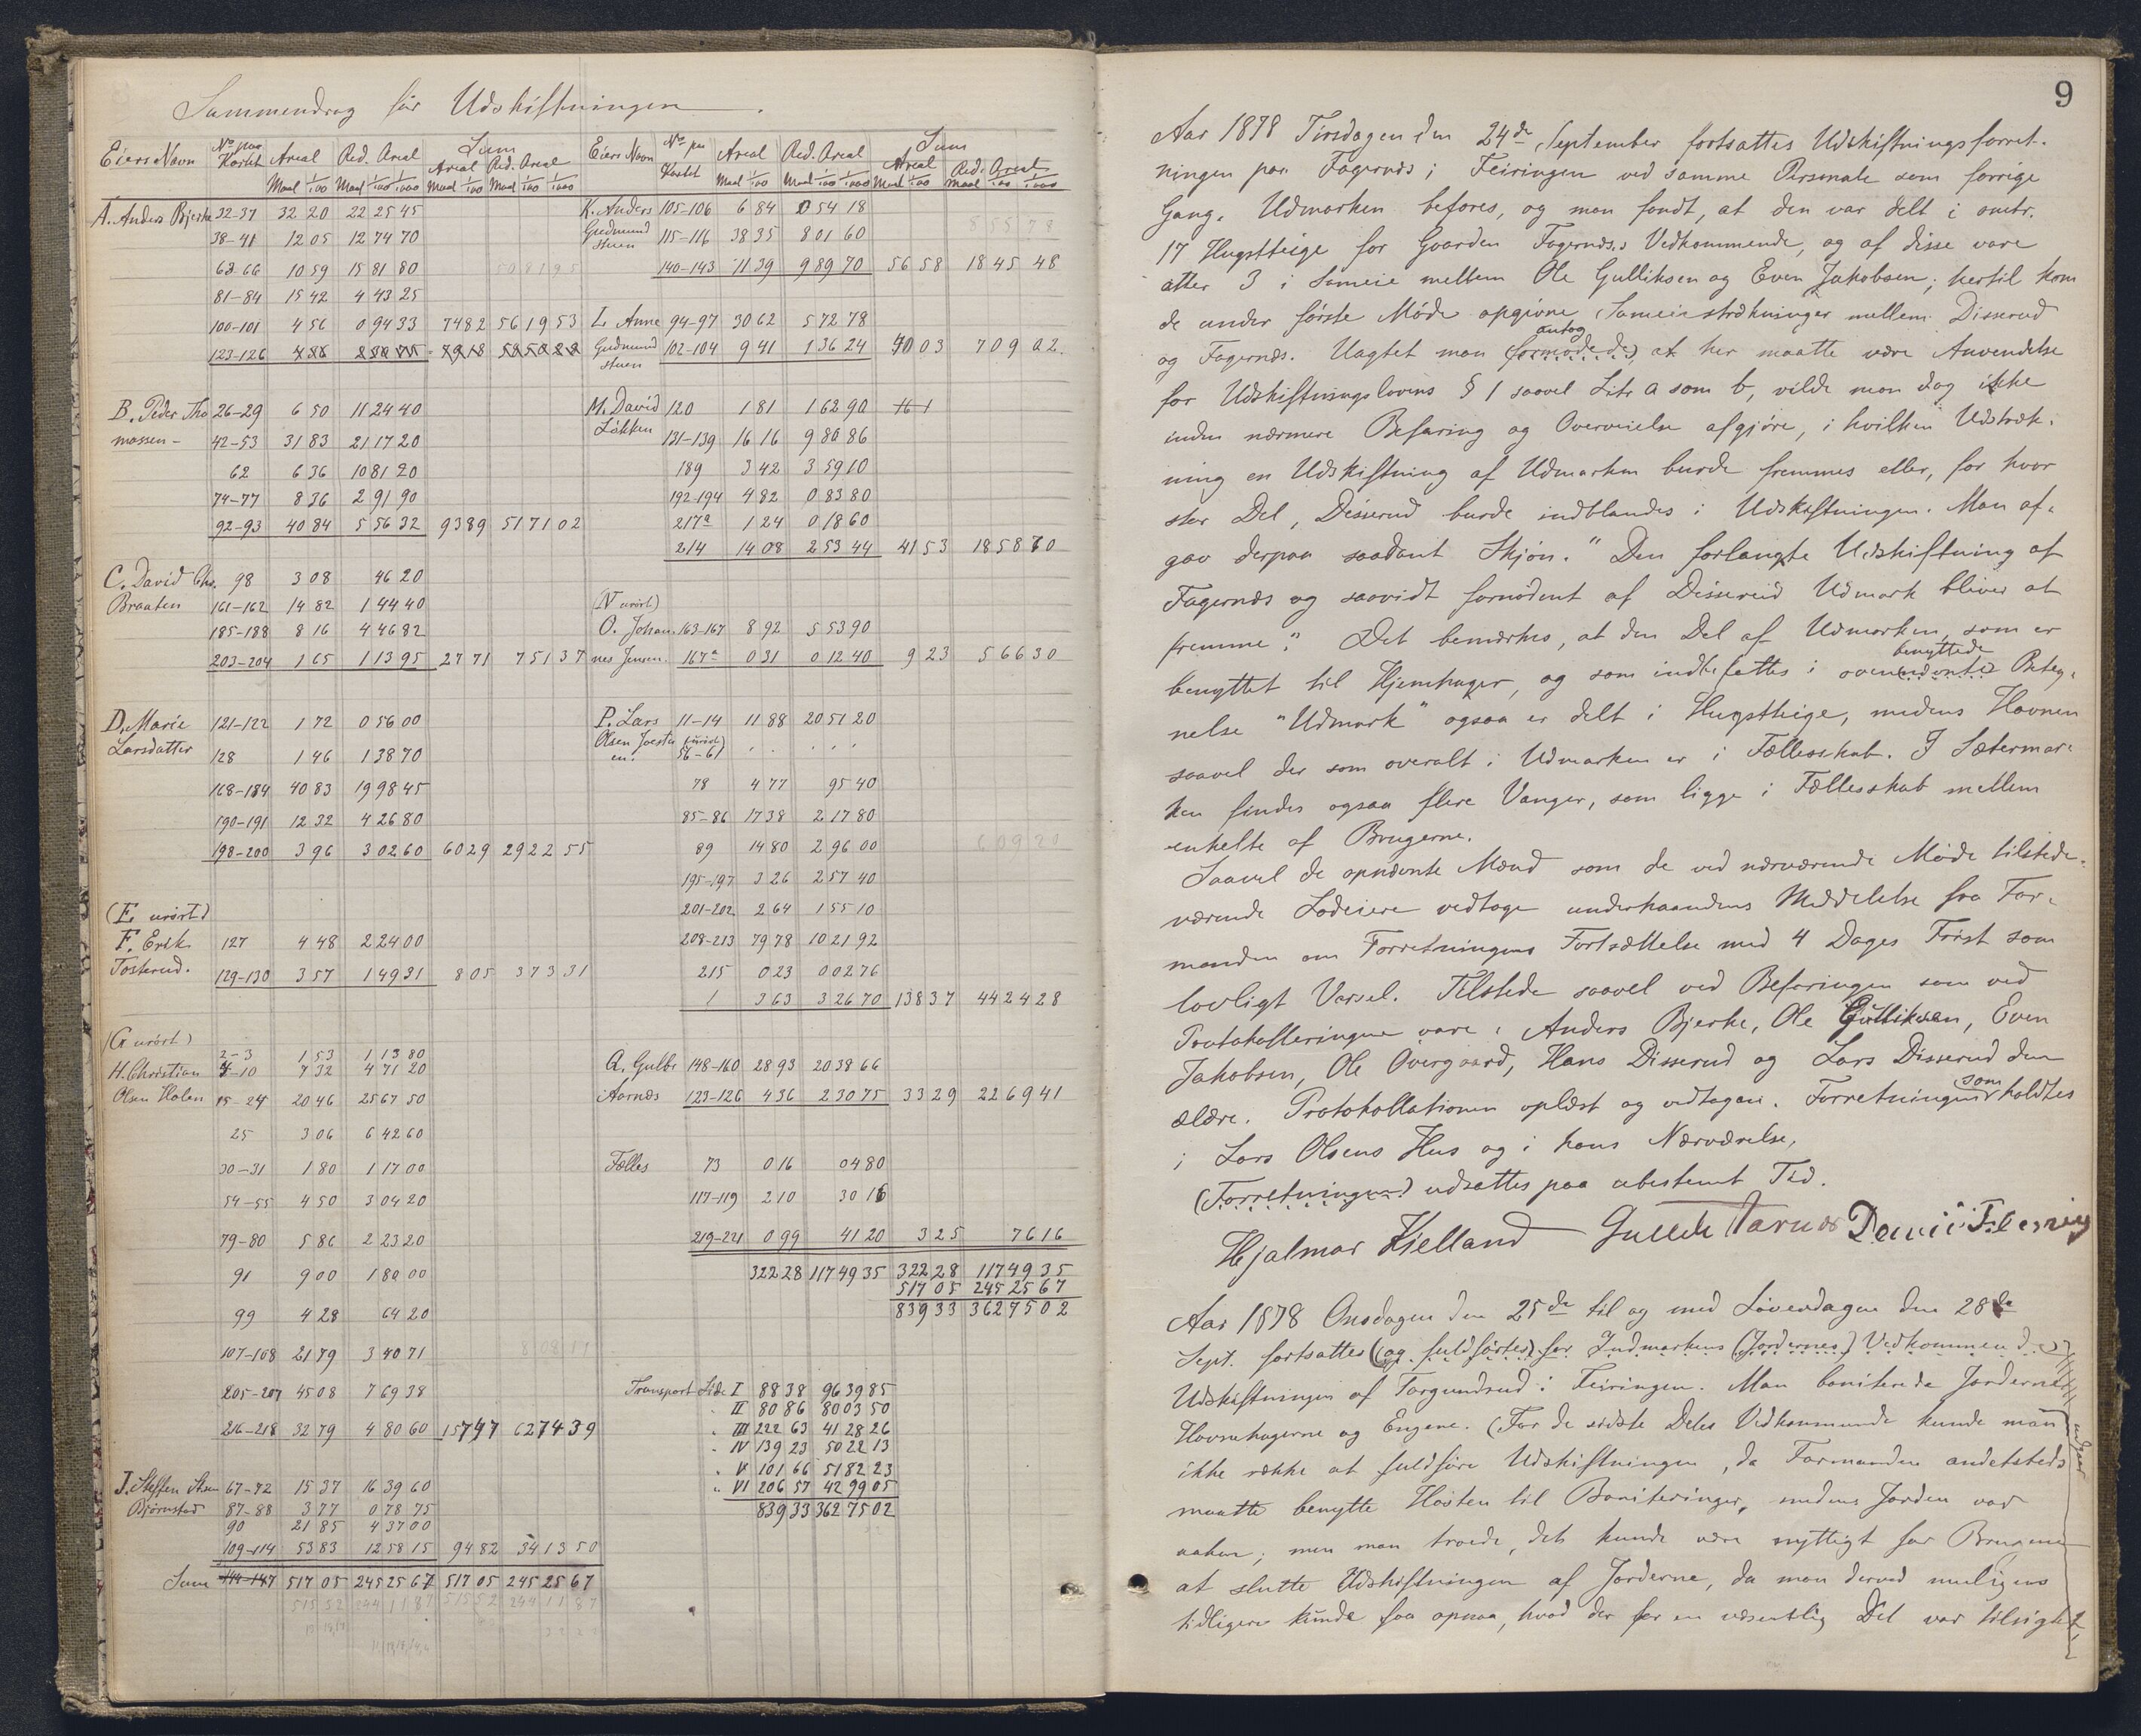 Sammendrag før Udskiftningen.
Eiers Navn No paa Kortet Areal Red. Areal Sum Areal Red. Areal
Maal 1/100 Maal 1/100 1/1000 Maal 1/100 Maal 1/100 1/1000
A. Anders Bjerke 32-37 32 20 22 25 45
38-41 12 05 12 74 70
63-66 10 59 15 81 80
81-84 15 42 4 43 25
100-101 4 56 0 94 33 74 82 56 19 53
123-126
B. Peder Tho 26-29 6 50 11 24 40
massen - 42-53 31 83 21 17 20
62 6 36 10 81 20
74-77 8 36 2 91 90
92-93 40 84 5 56 32 93 89 51 71 02
C. David Chr. 98 3 08 46 20
Braaten 161-162 14 82 1 44 40
185-188 8 16 4 46 82
203-204 1 65 1 13 95 27 71 7 51 37
D. Marie 121-122 1 72 0 56 00
Larsdatter 128 1 46 1 38 70
168-184 40 83 19 98 45
190-191 12 32 4 26 80
198-200 3 96 3 02 60 60 29 29 22 55
(E. urørt)
F. Erik 127 4 48 2 24 00
Tosterud. 129-130 3 57 1 49 31 8 05 3 73 31
(G urørt)
2-3 1 53 1 13 80
H. Christian 4-10 7 32 4 71 20
Olsen Holen 15-24 20 46 25 67 50
25 3 06 6 42 60
30-31 1 80 1 17 00
54-55 4 50 3 04 20
79-80 5 86 2 23 20
91 9 00 1 80 00
99 4 28 64 20
107-108 21 79 3 40 71
205-207 45 08 7 69 38
216-218 32 79 4 80 60 157 97 62 74 39
J. Steffen 67-72 15 37 16 39 60
Bjørnstad 87-88 3 77 0 78 75
90 21 85 4 37 00
109-114 53 83 12 58 15 94 82 34 13 50
Sum 144-147 517 05 245 25 67 517 05 245 25 67
Eiers Navn No paa Kortet Areal Red. Areal Sum Areal Red. Areal
Maal 1/100 Maal 1/100 1/1000 Maal 1/100 Maal 1/100 1/1000
K. Anders 105-106 6 84 0 54 18
Gudmund 115-116 38 35 8 01 60
stuen 140-143 11 39 9 89 70 56 58 18 45 48
L. Anne 94-97 30 62 5 72 78
Gudmund 102-104 9 41 1 36 24 40 03 7 09 02
stuen
M. David 120 1 81 1 62 90
Løkken 131-139 16 16 9 80 86
189 3 42 3 59 10
192-194 4 82 0 83 80
217a 1 24 0 18 60
214 14 08 2 53 44 41 53 18 58 70
(N urørt)
O. Johan 163-167 8 92 5 53 90
nes Jensen. 167a 0 31 0 12 40 9 23 5 66 30
P. Lars 11-14 11 88 20 51 20
Olsen (urørt) 56-61
78 4 77 95 40
85-86 17 38 2 17 80
89 14 80 2 96 00
195-197 3 26 2 57 40
201-202 2 64 1 55 10
208-213 79 78 10 21 92
215 0 23 0 02 76
1 3 63 3 26 70 138 37 44 24 28
Q. Gulbr 148-160 28 93 20 38 66
Aarnæs 123-126 4 36 2 30 75 33 29 22 69 41
Fælles 73 0 16 04 80
117-119 2 10 30 16
219-221 0 99 41 20 3 25 76 16
322 28 117 49 35 322 28 117 49 35
517 05 245 25 67
839 33 362 75 02
Transport Side I 88 38 96 39 85
" II 80 86 80 03 50
" III 222 63 41 28 26
" IV 139 23 50 22 13
" V 101 66 51 82 23
" VI 206 57 42 99 05
839 33 362 75 02
9
Aar 1878 Tirsdagen den 24de September fortsattes Udskiftningsforret-
ningen paa Fagernæs i Feiringen ved samme Personale som forrige
Gang. Udmarken befores, og man fandt, at den var delt i omtr.
17 Hugstteige for Gaarden Fagernæs.s Vedkommende, og af disse vare
atter 3 i Sameie mellem Ole Gulliksen og Even Jakobsen; hertil kom
de under første Møde opgivne Sameiestrækninger mellem Disserud
og Fagernæs. Uagtet man (formodede) antog at her maatte være Anvendelse
for Udskiftningslovens § 1 saavel Litr a som b, vilde man dog ikke
inden nærmere Befaring og Overveielse afgjøre, i hvilken Udstræk-
ning en Udskiftning af Udmarken burde fremmes eller, for hvor
stor Del, Disserud burde indblandes i Udskiftningen. Man af-
gav derpaa saadant Skjøn: "Den forlangte Udskiftning af
Fagernæs og saavidt fornødent af Disserud Udmark bliver at
fremme." Det bemærkes, at den Del af Udmarken, som er
benyttet til Hjemhager, og som indbefattes i ovenbenyttede Beteg-
nelse "Udmark" ogsaa er delt i Hugstteige, medens Havnen
saavel der som overalt i Udmarken er i Fællesskab. I Sætermar-
ken findes ogsaa flere Vanger, som ligge i Fællesskab mellem
enkelte af Brugerne.
Saavel de opnævnte Mænd som de ved nærværende Møde tilstede-
værende Lodeiere vedtoge underhaandens Meddelelse fra For-
manden om Forretningens Fortsættelse med 4 Dages Frist som
lovligt Varsel. Tilstede saavel ved Befaringen som ved
Protokolleringen vare: Anders Bjerke, Ole Gulliksen, Even
Jakobsen, Ole Overgaard, Hans Disserud og Lars Disserud den
ældre. Protokollationen oplæst og vedtagen. Forretningen som holdtes
i Lars Olsens Hus og i hans Nærværelse,
(Forretningen) udsattes paa ubestemt Tid.
Hjalmar Kielland Gulbr Aarnæs David
Aar 1878 Onsdagen den 25de til og med Løverdagen den 28de
Sept. fortsattes (og fuldførtes) for Indmarkens (Jordernes) Vedkommende
Udskiftningen af Torgundrud i Feiringen. Man boniterede Jorderne
Havnehagerne og Engene. (For de sidste Deles Vedkommende kunde man
ikke række at fuldføre Udskiftningen, da Formanden andetsteds
maatte benytte Høsten til Boniteringer, medens Jorden var
aaben; men man troede, det kunde være nyttigt for Brugerne
at slutte Udskiftningen af Jorderne, da man derved muligens
tidligere kunde faa opnaa, hvad der for en væsentlig Del var tilsigtet,
udgaar